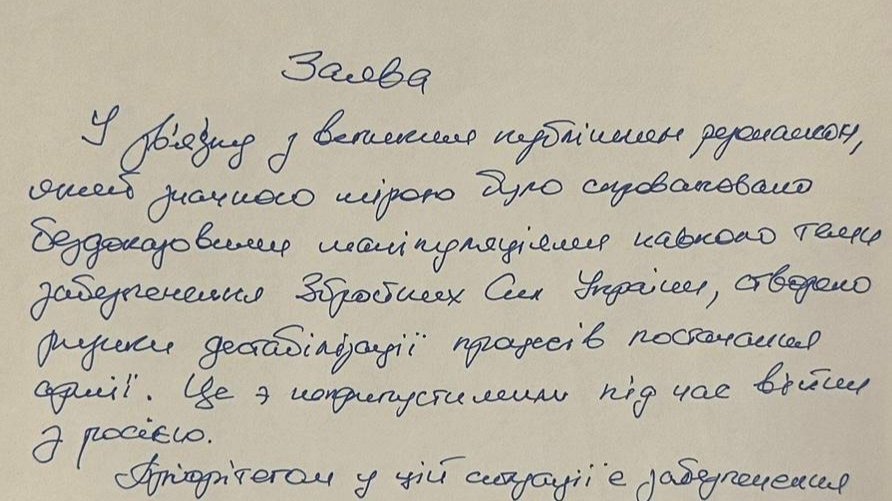 Заява
У зв'язку з великим публічним резонансом,
який значною мірою було спровоковано
бездоказовими маніпуляціями навколо теми
забезпечення Збройних Сил України, створено
ризики дестабілізації процесів постачання
армії. Це є неприпустимим під час війни
з росією.
Пріоритетом у цій ситуації є забезпечення